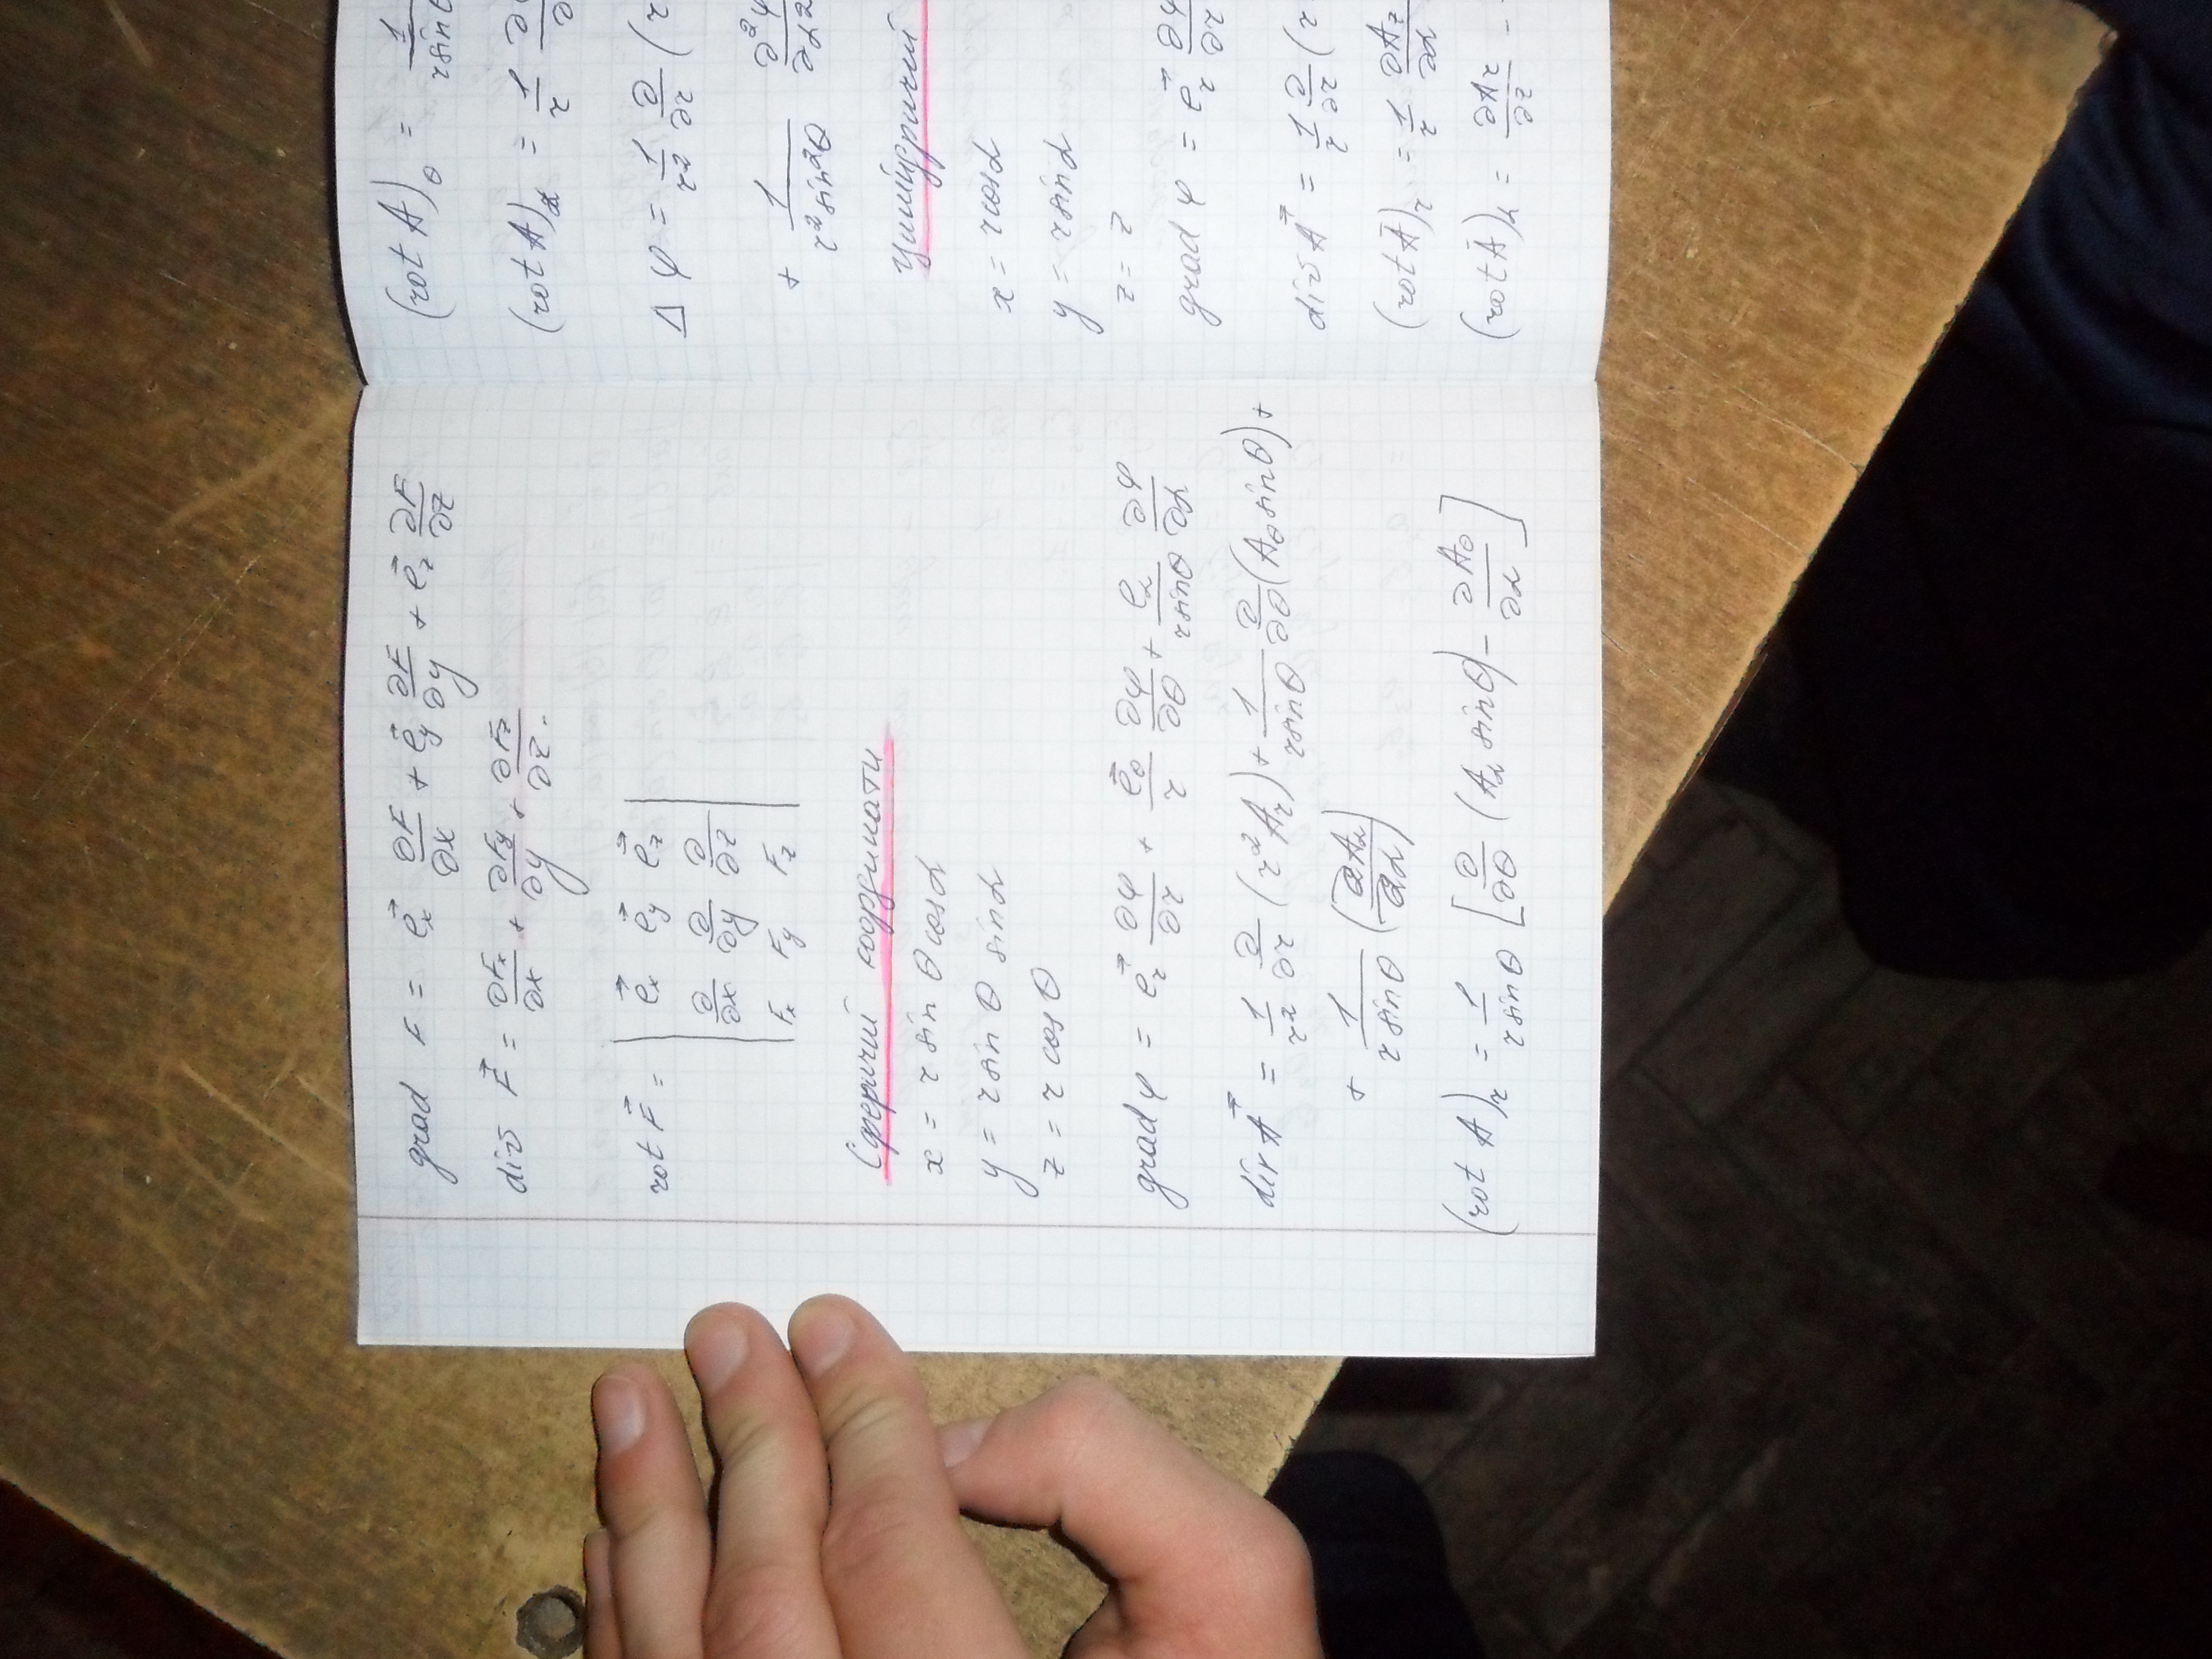 grad F = e⃗x ∂F/∂x + e⃗y ∂F/∂y + e⃗z ∂F/∂z
div F⃗ = ∂Fx/∂x + ∂Fy/∂y + ∂Fz/∂z.
rot F⃗ = | e⃗x e⃗y e⃗z |
| ∂/∂x ∂/∂y ∂/∂z |
| Fx Fy Fz |
Сферичні координати
x = r sin θ cos α
y = r sin θ sin α
z = r cos θ
grad φ = e⃗r ∂φ/∂r + e⃗θ/r ∂φ/∂θ + e⃗α/(r sinθ) ∂φ/∂α
div A⃗ = 1/r² ∂/∂r (r² Ar) + 1/(r sinθ) ∂/∂θ (Aθ sinθ) +
+ 1/(r sinθ) (∂Aα/∂α)
(rot A)r = 1/(r sinθ) [∂/∂θ (Aα sinθ) − ∂Aθ/∂α]
(rot A)θ = 1/(r sinθ
(rot A)α = 1/r ∂
Δ φ = 1/r² ∂/∂r (r
+ 1/(r² sin²θ) ∂²φ/∂α²
Циліндричні
x = r cos α
y = r sin α
z = z
grad φ = e⃗r ∂φ/∂r
div A⃗ = 1/r ∂/∂r (r
(rot A⃗)r = 1/r ∂Az/∂α
(rot A⃗)α = ∂Ar/∂z -